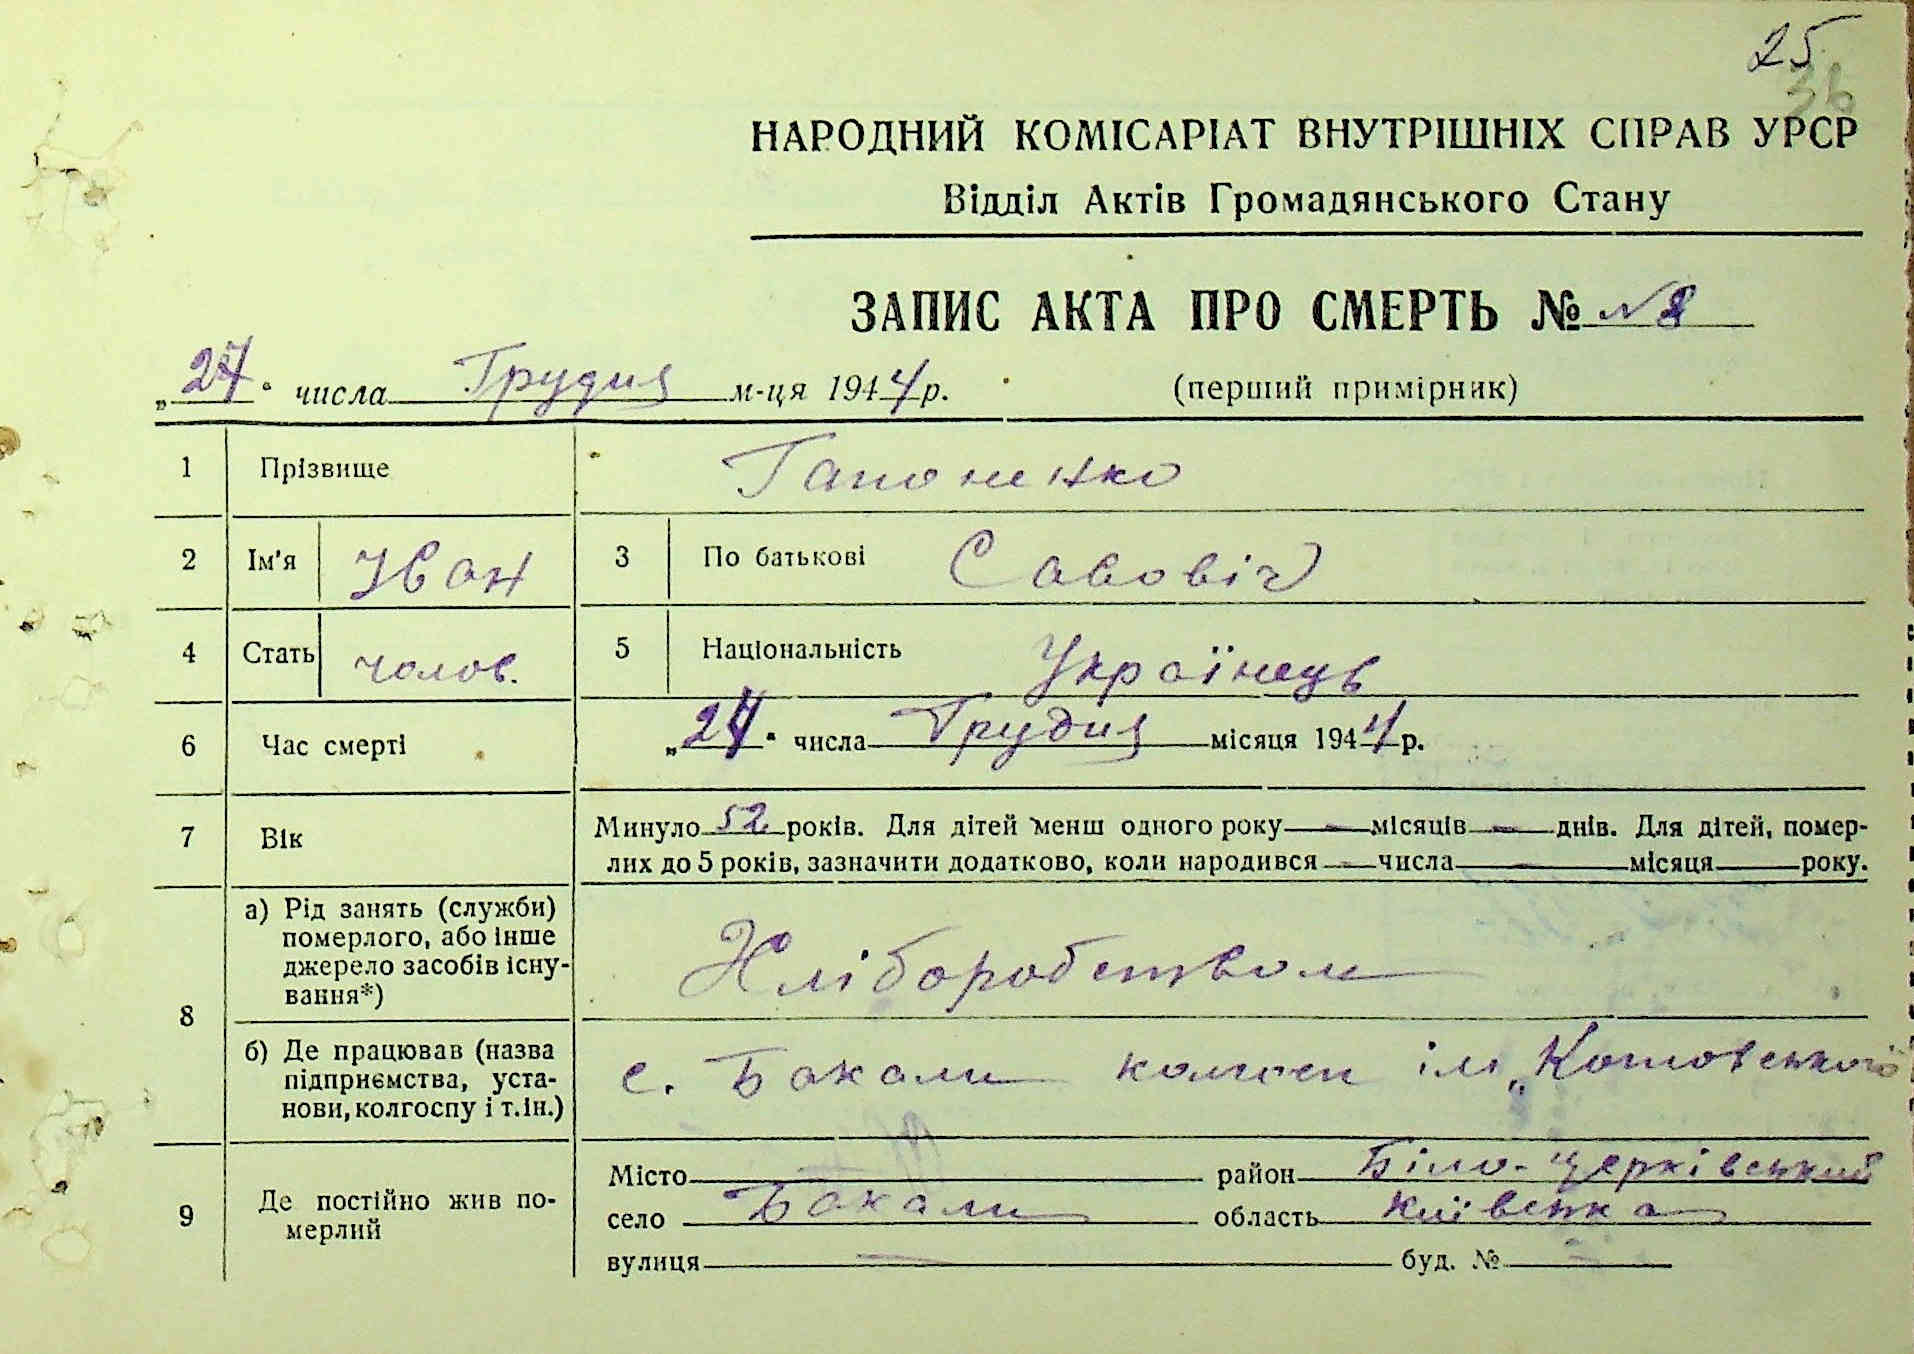 25
36
НАРОДНИЙ КОМІСАРІАТ ВНУТРІШНІХ СПРАВ УРСР
Відділ Актів Громадянського Стану
ЗАПИС АКТА ПРО СМЕРТЬ № N 8
„27" числа Грудня м-ця 1944 р. (перший примірник)
1 Прізвище Гапоненко
2 Ім'я Іван 3 По батькові Савовіч
4 Стать чолов. 5 Національність Українець
6 Час смерті „24" числа Грудня місяця 1944 р.
7 Вік Минуло 52 років. Для дітей менш одного року — місяців — днів. Для дітей, помер-
лих до 5 років, зазначити додатково, коли народився — числа — місяця року.
8 а) Рід занять (служби) померлого, або інше джерело засобів існу-вання*) Хліборобством
б) Де працював (назва підприємства, уста-нови, колгоспу і т. ін.) с. Бакали колгосп ім „Котовського
9 Де постійно жив по-мерлий Місто — район Біло-Церківський
село Бакали область Київська
вулиця — буд. № —